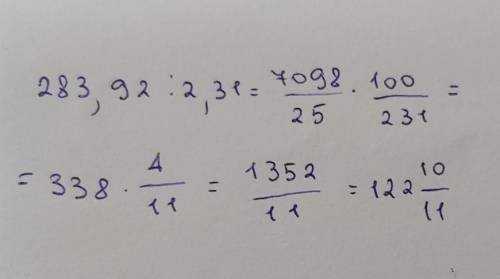 283,92 : 2,31 = 7098/25 · 100/231 =
= 338 · 4/11 = 1352/11 = 122 10/11